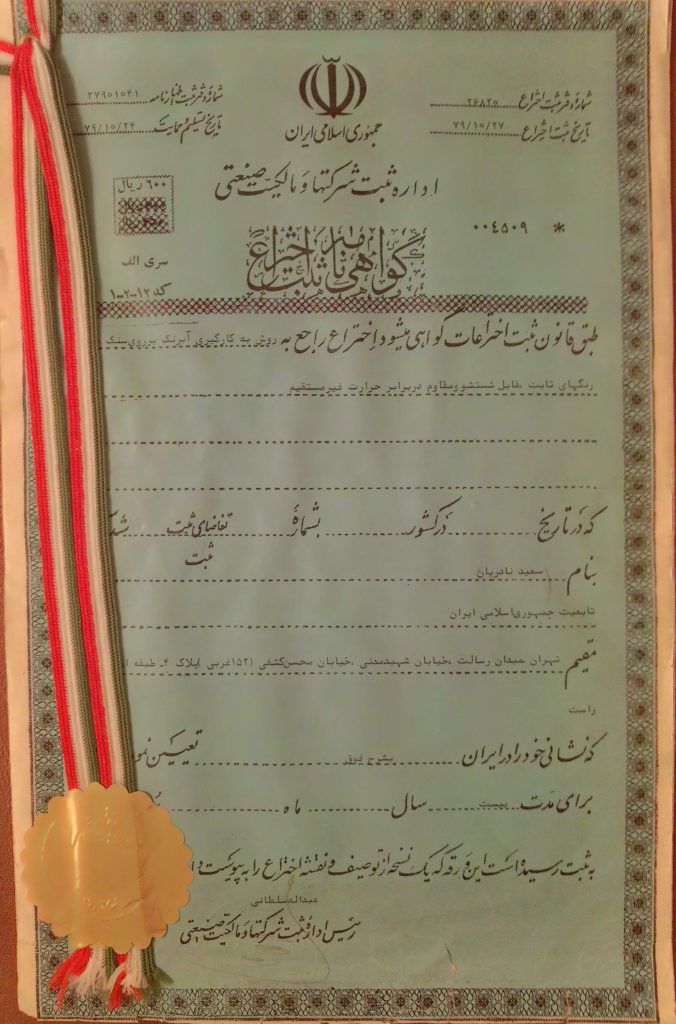 شماره دفتر ثبت اختراع ۲۶۸۲۵
تاریخ ثبت اختراع ۷۹/۱۰/۲۷
جمهوری اسلامی ایران
شماره دفتر ثبت اظهارنامه ۳۷۹۰۱۰۴۱
تاریخ تسلیم و حمایت ۷۹/۱۰/۲۴
اداره ثبت شرکتها و مالکیت صنعتی
۶۰۰ ریال
* ۰۰۴۵۰۹
گواهی نامه ثبت اختراع
سری الف
کد ۱۲-۲-۱
طبق قانون ثبت اختراعات گواهی میشود اختراع راجع به روش به کارگیری آبرنگ برروی سنگ
رنگهای ثابت ،قابل شستشو ومقاوم دربرابر حرارت غیرمستقیم
که در تاریخ در کشور بشماره تقاضای ثبت
ثبت
بنام سعید نادریان
تابعیت جمهوری اسلامی ایران
مقیم تهران ،میدان رسالت ،خیابان شهیدمدنی ،خیابان محسن کشفی (۱۵۲غربی )پلاک ۴ـ طبقه
راست
که نشانی خود را در ایران بشرح فوق تعیین
برای مدت بیست سال ماه
به ثبت رسیده است این ورقه که یک نسخه از توصیف و نقشه اختراع را به پیوست
عبداله سلطانی
رئیس اداره ثبت شرکتها و مالکیت صنعتی